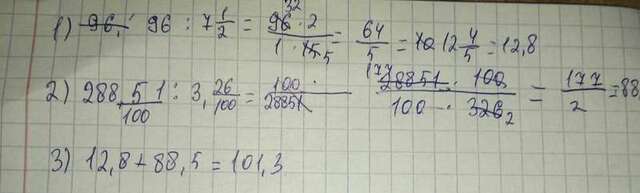 1) 96 : 7 1/2 = 96 · 2 / 1 · 15 = 64/5 = 12 4/5 = 12,8
2) 288 51/100 : 3, 26/100 = 100/28851 28851 · 100 / 100 · 326 = 177/2 = 88
3) 12,8 + 88,5 = 101,3